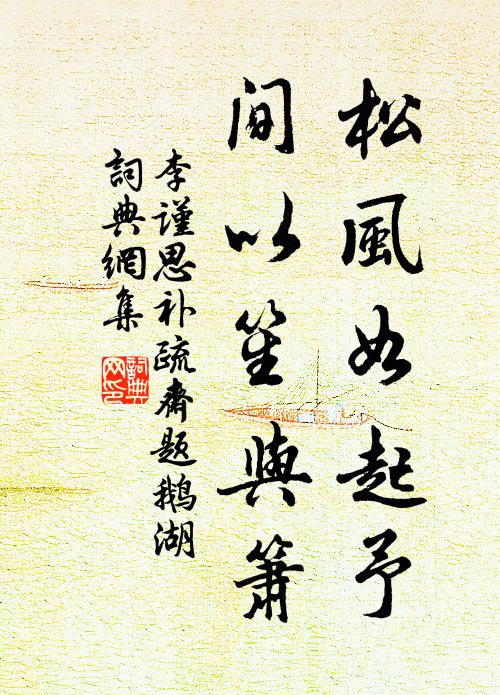 松風如起予
间以笙與簫
李谨思补疏齋题鹅湖
詞典網集
詞典
网印